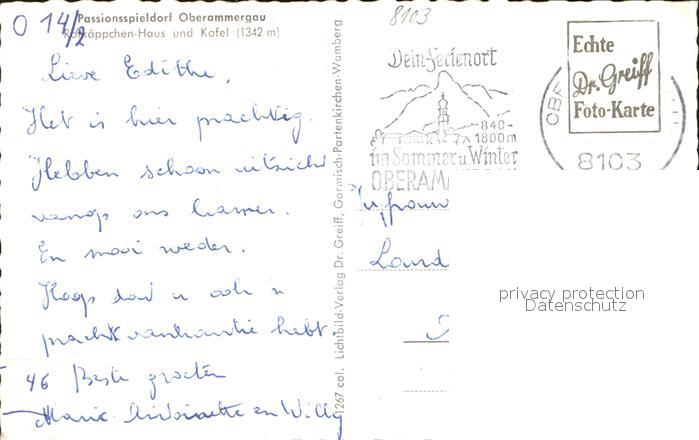 O 14/2
Passionsspieldorf Oberammergau
Rotkäppchen-Haus und Kofel (1342 m)
Lieve Edithe,
Het is hier prachtig.
Hebben schoon uitzicht
vanop ons kamer.
En mooi weder.
Hoop dat u ook 'n
pracht vankantie hebt.
46 Beste groeten
Marie-Antoinette en Willy
1267 col. Lichtbild-Verlag Dr. Greiff, Garmisch-Partenkirchen-Wamberg
8103
Dein Ferienort
840-
1800m
im Sommer u Winter
OBERAM
Echte
Dr. Greiff
Foto-Karte
OBE
8103
Jufrouw
Lourd
privacy protection
Datenschutz